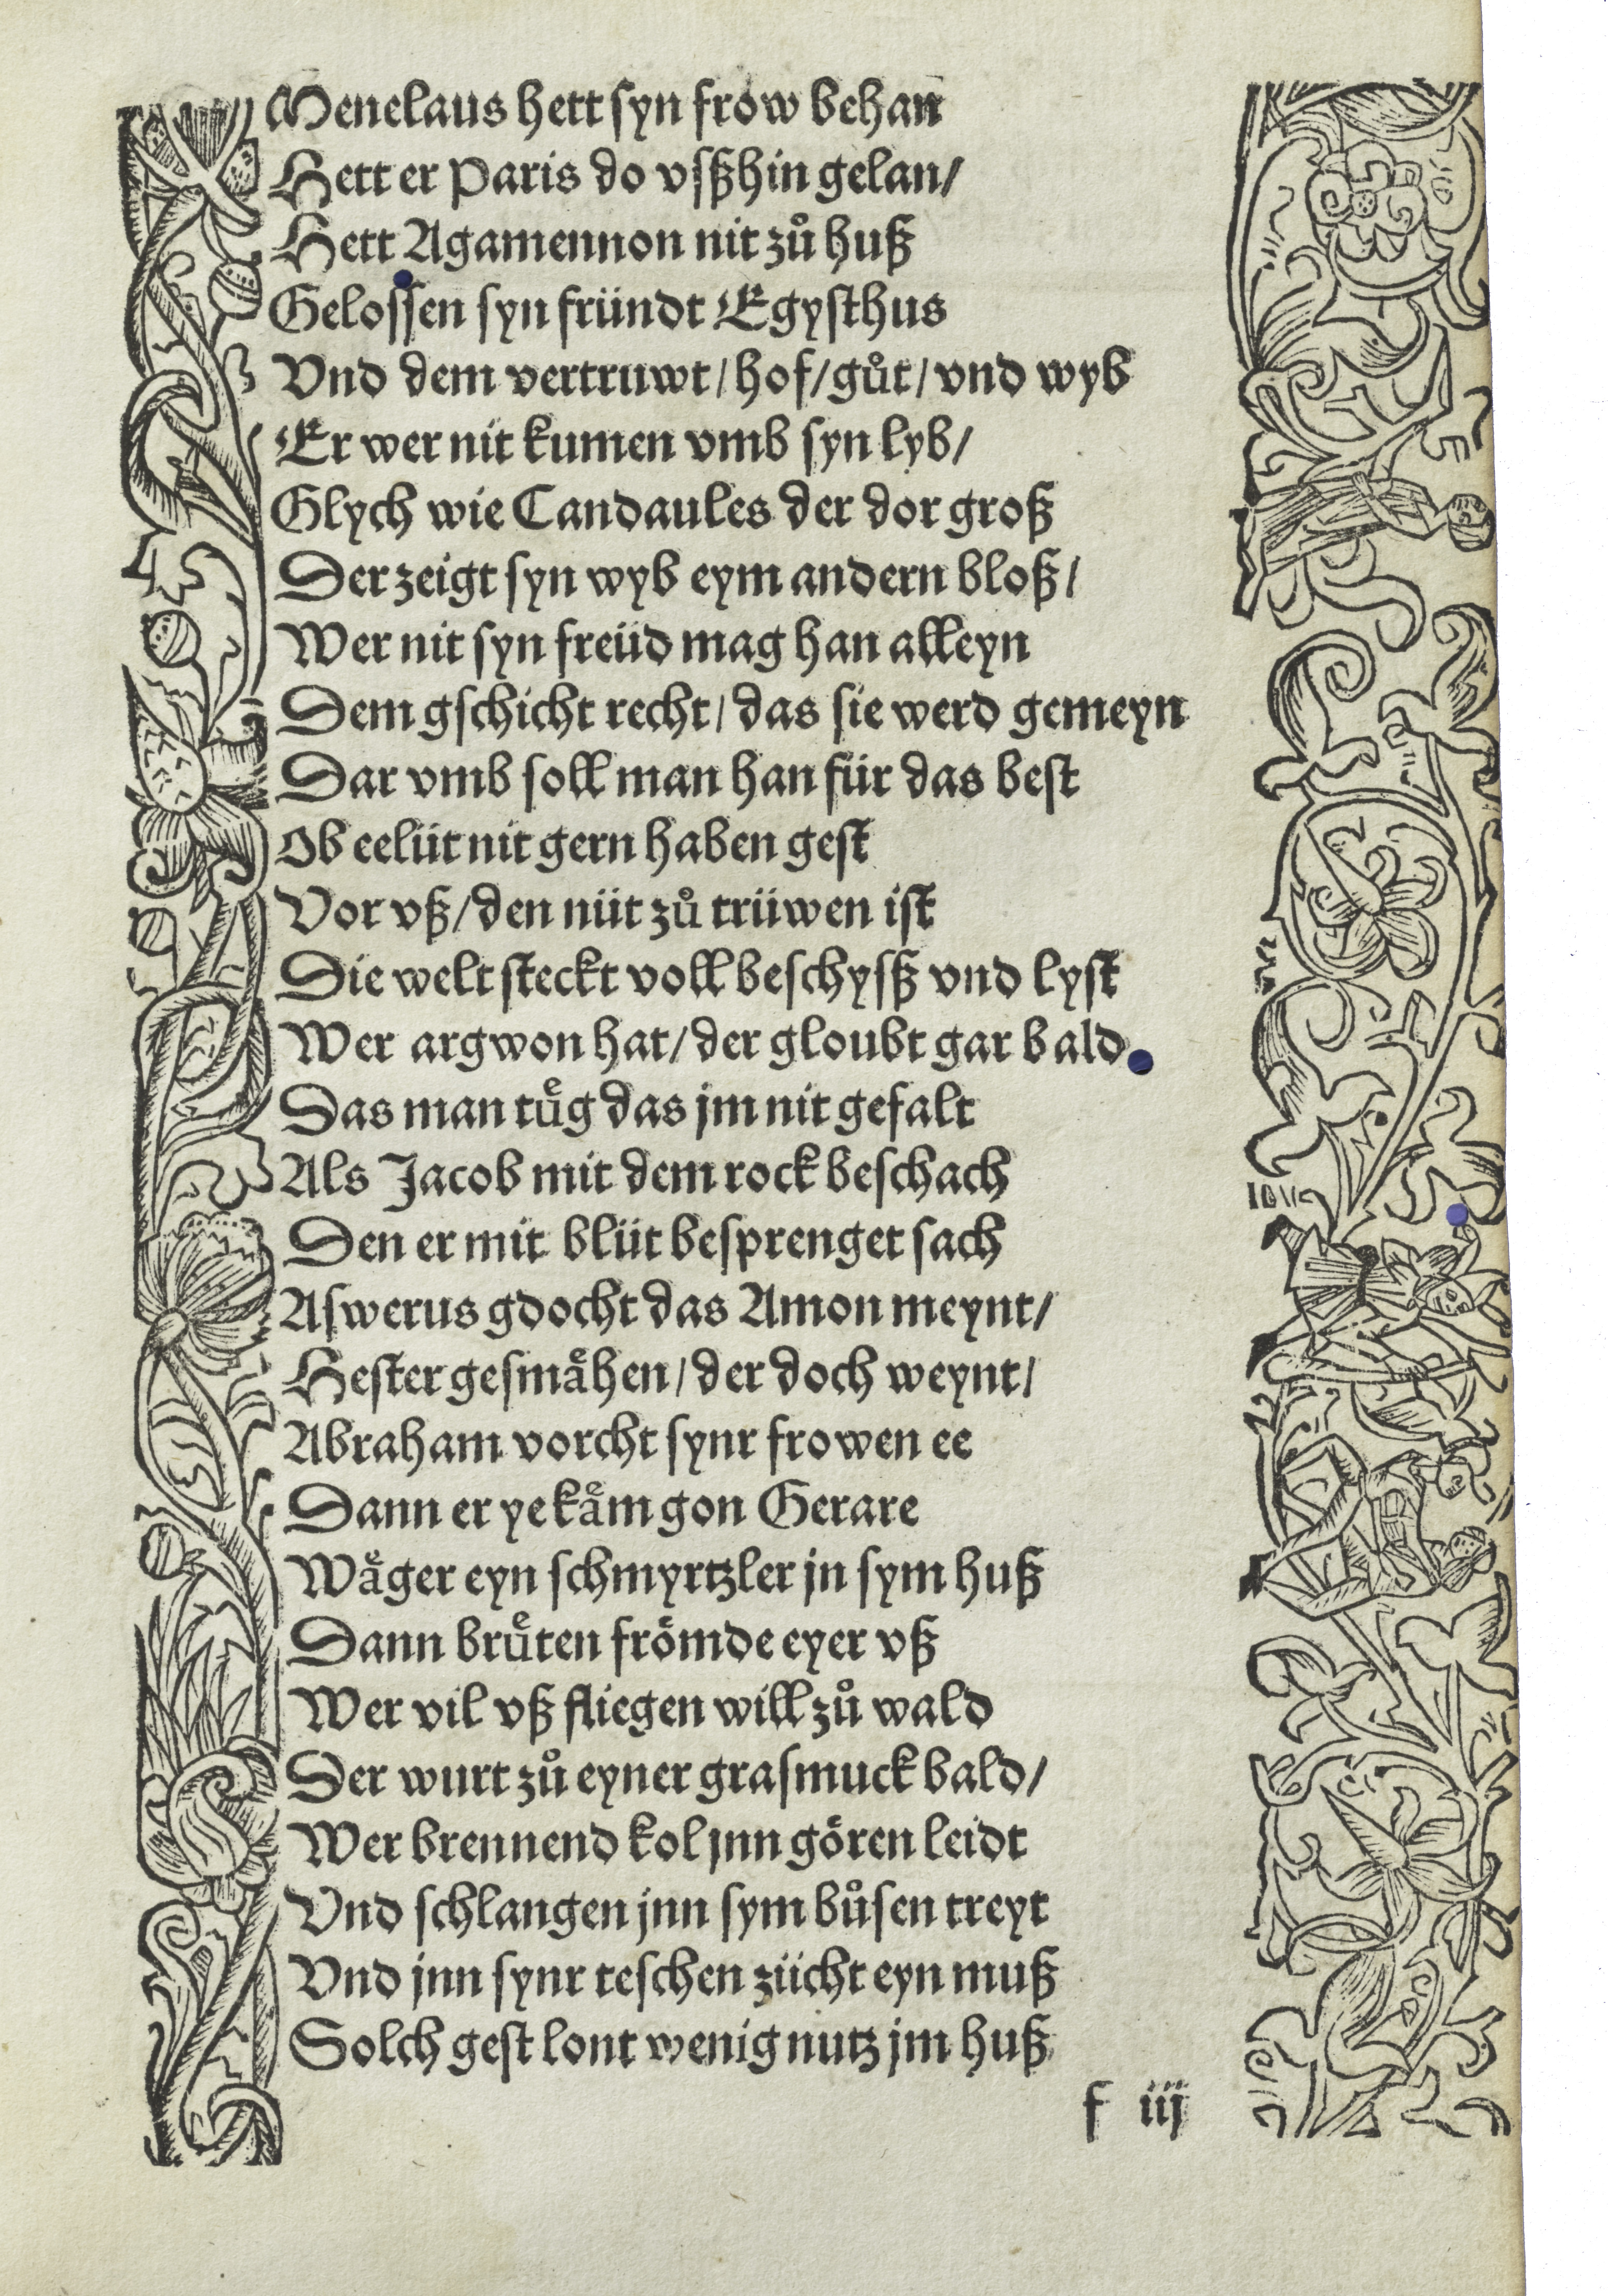 Menelaus hett syn frow behan
Hett er Paris do vſßhin gelan/
Hett Agamennon nit zuͦ huß
Gelossen syn fründt Egysthus
Vnd dem vertruwt/ hof/ guͦt/ vnd wyb
Er wer nit kumen vmb syn lyb/
Glych wie Candaules der dor groß
Der zeigt syn wyb eym andern bloß/
Wer nit syn freüd mag han alleyn
Dem gschicht recht/ das sie werd gemeyn
Dar vmb soll man han für das best
Ob eelüt nit gern haben gest
Vor vß/ den nüt zuͦ trüwen ist
Die welt steckt voll beschysß vnd lyst
Wer argwon hat/ der gloubt gar bald
Das man tuͤg das jm nit gefalt
Als Jacob mit dem rock beschach
Den er mit blüt besprenget sach
Aswerus gdocht das Amon meynt/
Hester gesmaͤhen/ der doch weynt/
Abraham vorcht synr frowen ee
Dann er ye kaͤm gon Gerare
Waͤger eyn schmyrtzler jn sym huß
Dann bruͤten froͤmde eyer vß
Wer vil vß fliegen will zuͦ wald
Der wurt zuͦ eyner grasmuck bald/
Wer brennend kol jnn goͤren leidt
Vnd schlangen jnn sym buͦsen treyt
Vnd jnn synr teschen zücht eyn muß
Solch gest lont wenig nutz jm huß
f iij